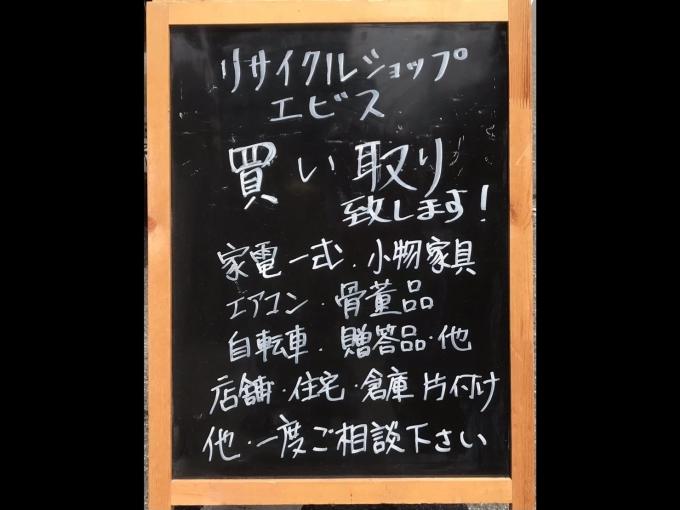 リサイクルショップ
エビス
買い取り
致します!
家電一式・小物家具
エアコン・骨董品
自転車・贈答品・他
店舗・住宅・倉庫片付け
他・一度ご相談下さい